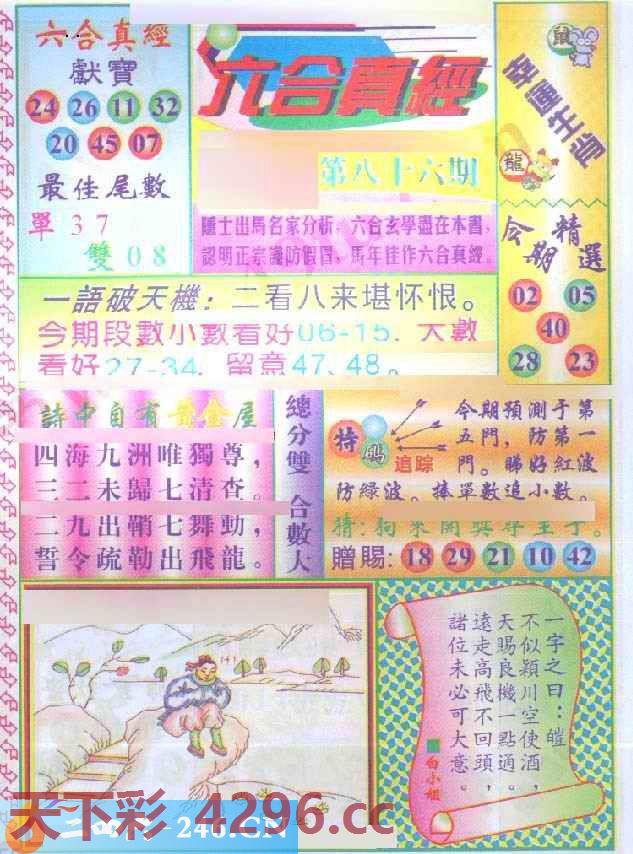 六合真經
獻寶
24 26 11 32
20 45 07
最佳尾數
單 3 7
雙 0 8
六合真經
第八十六期
隱士出馬名家分析，六合玄學盡在本書，
認明正宗謹防假冒，馬年佳作六合真經。
鼠
幸運生肖
龍
今期精選
02 05
40
28 23
一語破天機：二看八来堪怀恨。
今期段數小數看好06-15．大數
看好27-34．留意47、48。
詩中自有黄金屋
四海九洲唯獨尊，
三二未歸七清查。
二九出鞘七舞動，
誓令疏勒出飛龍。
總分雙 合數大
特碼
追踪
今期預測于第
五門，防第一
門。睇好紅波
防綠波。捧單數追小數。
贈賜：18 29 21 10 42
一字之曰：皚
不似潁川空使酒，
天賜良機一點通。
遠走高飛不回頭，
諸位未必可大意。
白小姐
天下彩 4296.cc
246.CN